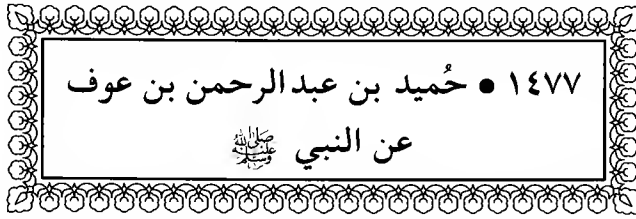 ١٤٧٧ • حُميد بن عبدالرحمن بن عوف
عن النبي ﷺ